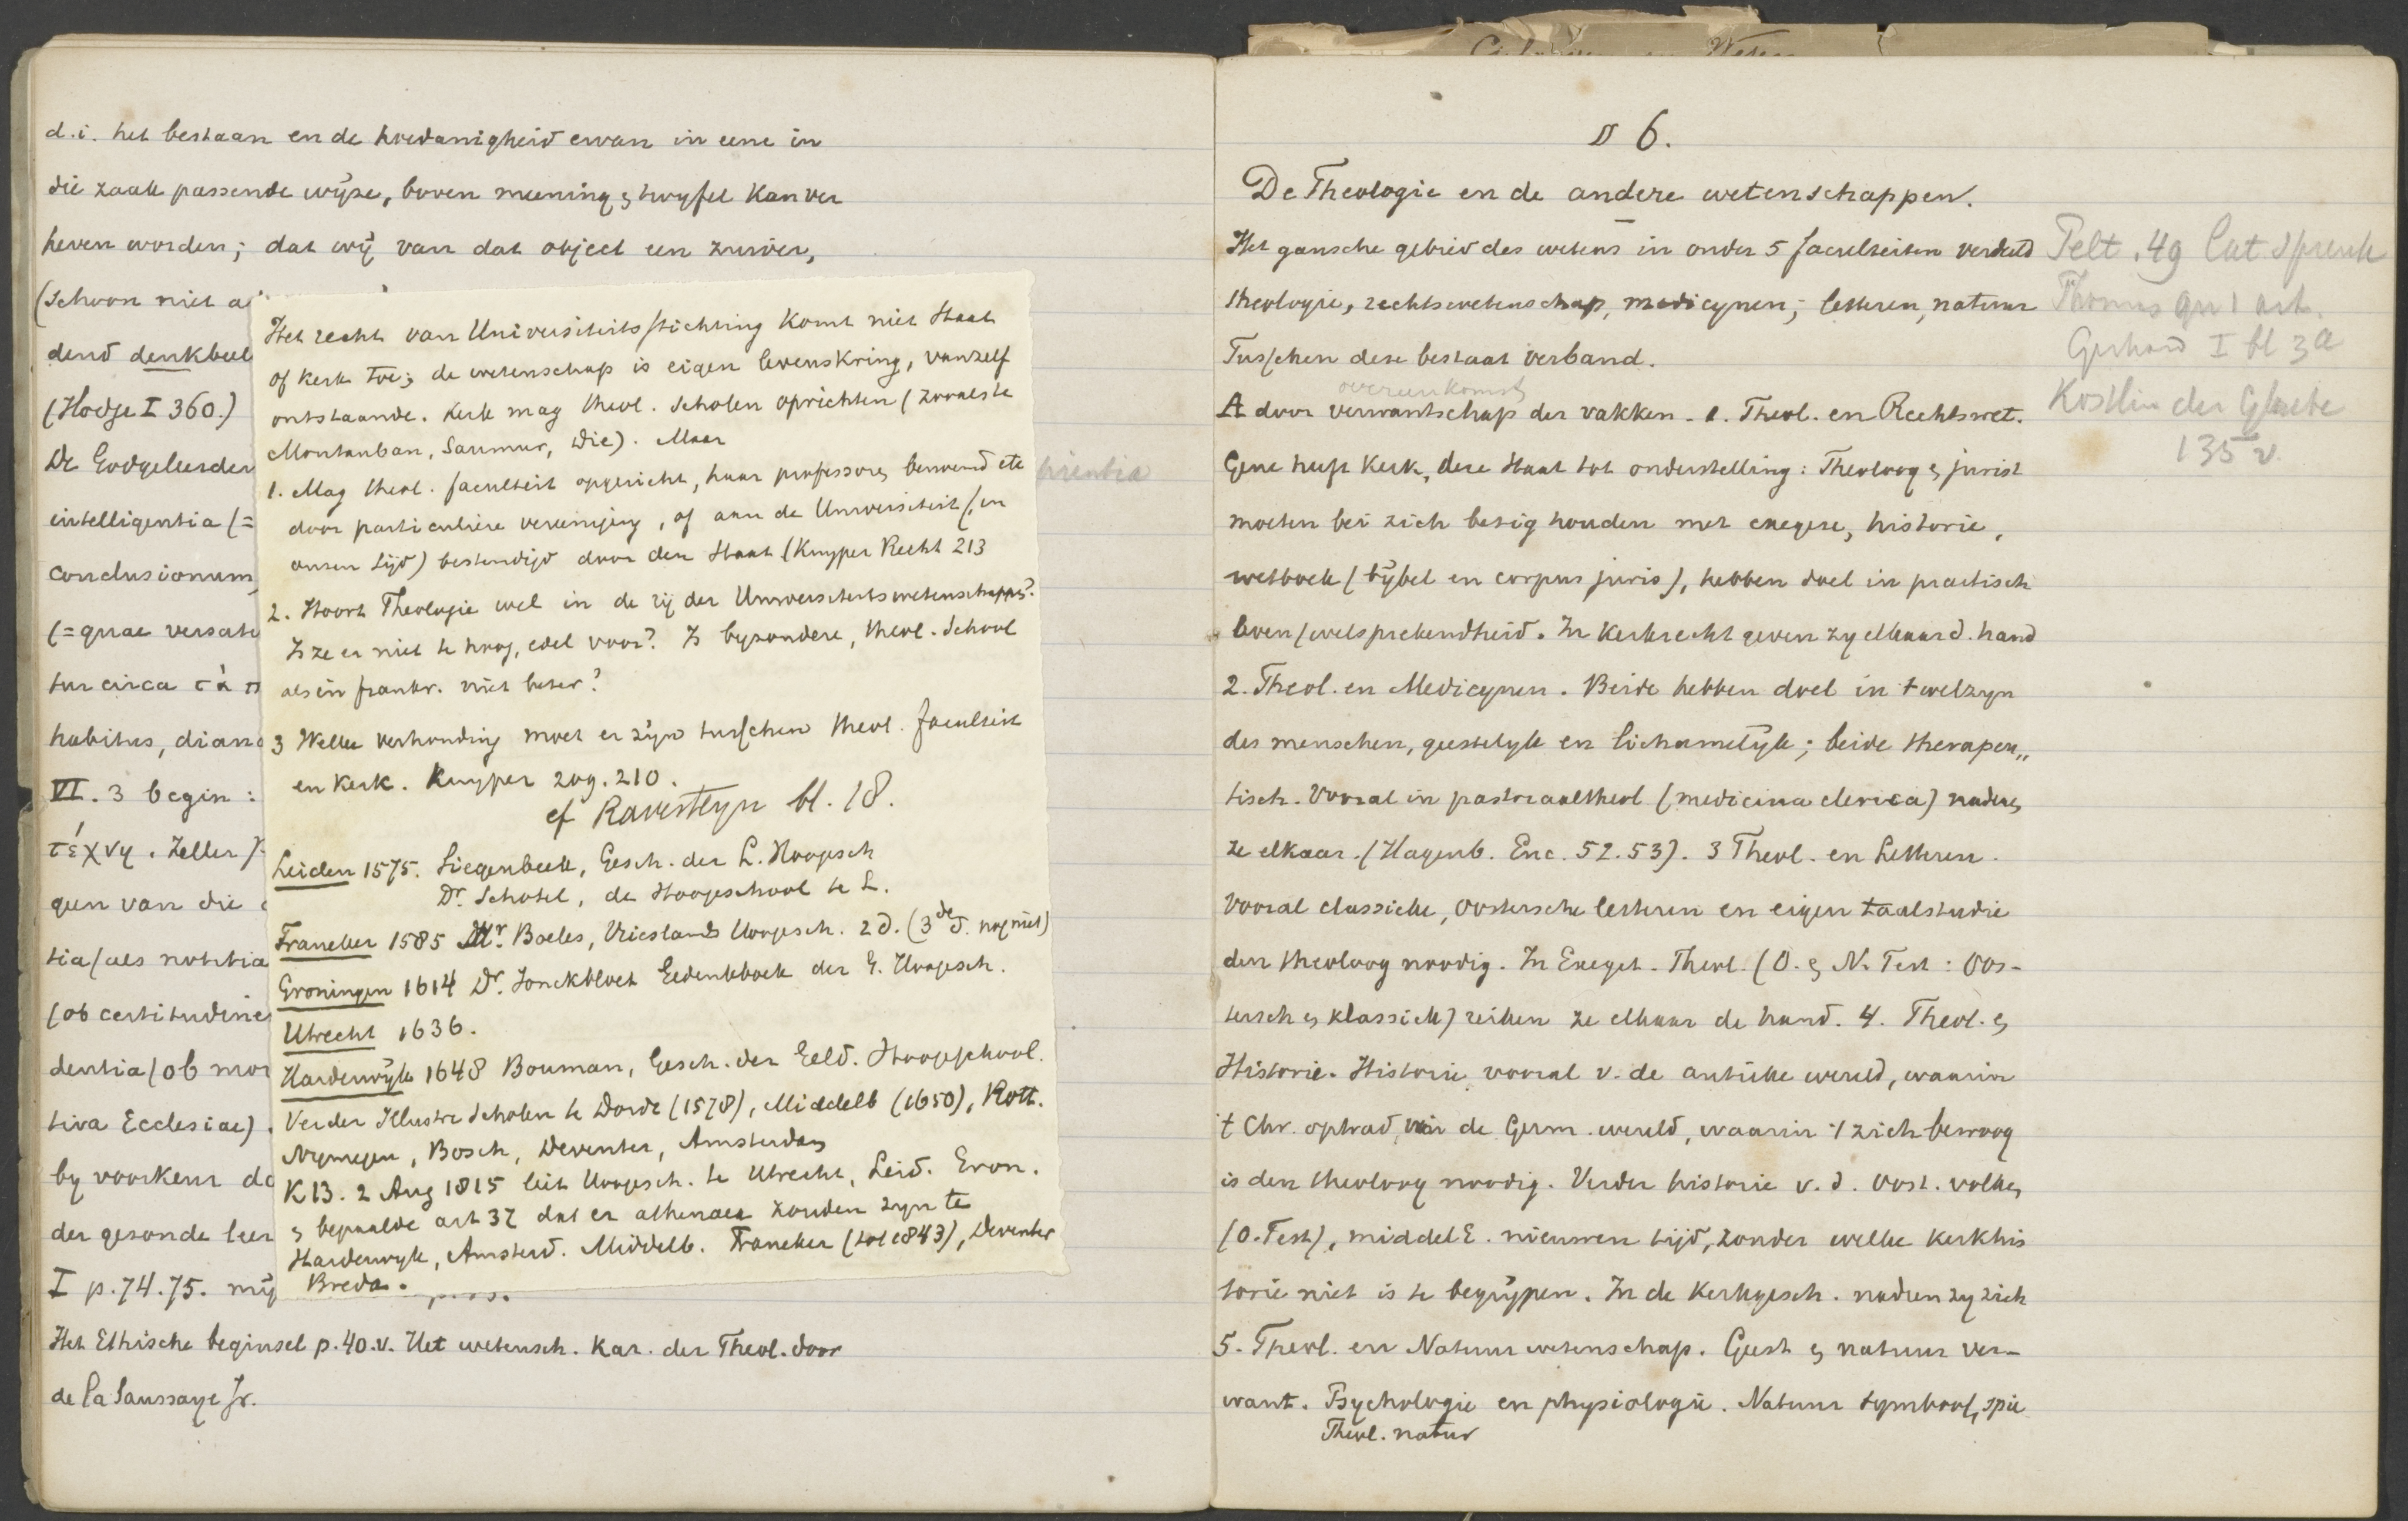 d.i. het bestaan en de hoedanigheid ervan in eene in
die zaak passende wijze, boven meening & twyfel kan ver
heven worden; dat wij van dat object een zuiver,
(schoon niet a
dend denkbeel
(Hodge I 360.)
De Godgeleerder
intelligentia (=
conclusionum,
(= quae versatu
tur circa τὰ π
habitus, diano
VI. 3 begin:
τέχνη. Zeller
gen van die
tia (als notitia
(ob certitudine
dentia (ob mor
tiva Ecclesiae).
by voorkeur do
der gezonde leer
I p. 74. 75. mij
Het Ethische beginsel p. 40. v. Het wetensch. kar. der Theol. door
de la Saussaye Jr.
Het recht van Universiteitsstichting komt niet Staat
of Kerk toe; de wetenschap is eigen levenskring, vanzelf
ontstaande. Kerk mag theol. scholen oprichten (zooals te
Montauban, Saumur, Die). Maar
1. Mag theol. faculteit opgericht, haar professoren benoemd etc
door particuliere vereeniging, of aan de Universiteit (in
onzen tijd) bestendigd door den Staat (Kuyper Recht 213
2. Hoort Theologie wel in de rij der Universiteitswetenschappen?
Is ze er niet te hoog, edel voor? Is byzondere, theol. school
als in frankr. niet beter?
3 Welke verhouding moet er zijn tusschen theol. faculteit
en kerk. Kuyper 209. 210.
cf Ravesteyn bl. 18.
Leiden 1575. Siegenbeek, Gesch. der L. Hoogesch
Dr. Schotel, de Hoogeschool te L.
Franeker 1585 Mr. Boeles, Frieslands Hoogesch. 2 d. (3de d. nog niet)
Groningen 1614 Dr. Jonckbloet Gedenkboek der G. Hoogesch.
Utrecht 1636.
Harderwijk 1648 Bouman, Gesch. der Geld. Hoogeschool.
Verder Illustre Scholen te Dordr (1578), Middelb (1650), Rott.
Nymegen, Bosch, Deventer, Amsterdam
KB. 2 Aug 1815 liet Hoogesch. te Utrecht, Leid. Gron.
& bepaalde art 37 dat er athenaea zouden zyn te
Harderwyk, Amsterd. Middelb. Franeker (tot 1843), Deventer
Breda.
§ 6.
De Theologie en de andere wetenschappen.
Het gansche gebied des wetens in onder 5 faculteiten verdeeld
theologie, rechtswetenschap, medicynen; letteren, natuur
Tusschen deze bestaat verband.
overeenkomst
A door verwantschap der vakken. 1. Theol. en Rechtswet.
Gene heeft Kerk, deze Staat tot onderstelling: Theoloog & jurist
moeten bei zich bezig houden met exegese, historie,
wetboek (bijbel en corpus juris), hebben doel in practisch
leven (welsprekendheid. In Kerkrecht geven zy elkaar d. hand
2. Theol. en Medicynen. Beide hebben doel in 't welzyn
des menschen, geestelyk en lichamelijk; beide therapeu„
tisch. Vooral in pastoraaltheol (medicina clerica) naderen
ze elkaar. (Hagenb. Enc. 52. 53). 3 Theol. en Letteren.
Vooral classieke, Oostersche letteren en eigen taalstudie
den theoloog noodig. In Exeget. Theol. (O. & N. Test: Oos-
tersch & klassiek) reiken ze elkaar de hand. 4. Theol. &
Historie. Historie vooral v. de antieke wereld, waarin
't Chr. optrad, van de Germ. wereld, waarin 't zich bewoog
is den theoloog noodig. Verder historie v. d. Oost. volken
(O. Test), middel E. nieuwen tijd, zonder welke kerkhis
torie niet is te begrijpen. In de Kerkgesch. naderen zy zich
5. Theol. en Natuurwetenschap. Geest & natuur ver-
want. Psychologie en physiologie. Natuur symbool, spie
Theol. natur
Pelt. 49
Thomas qu 1 art.
Gerhard I bl 3a
Kostlin der Glaube
135 v.